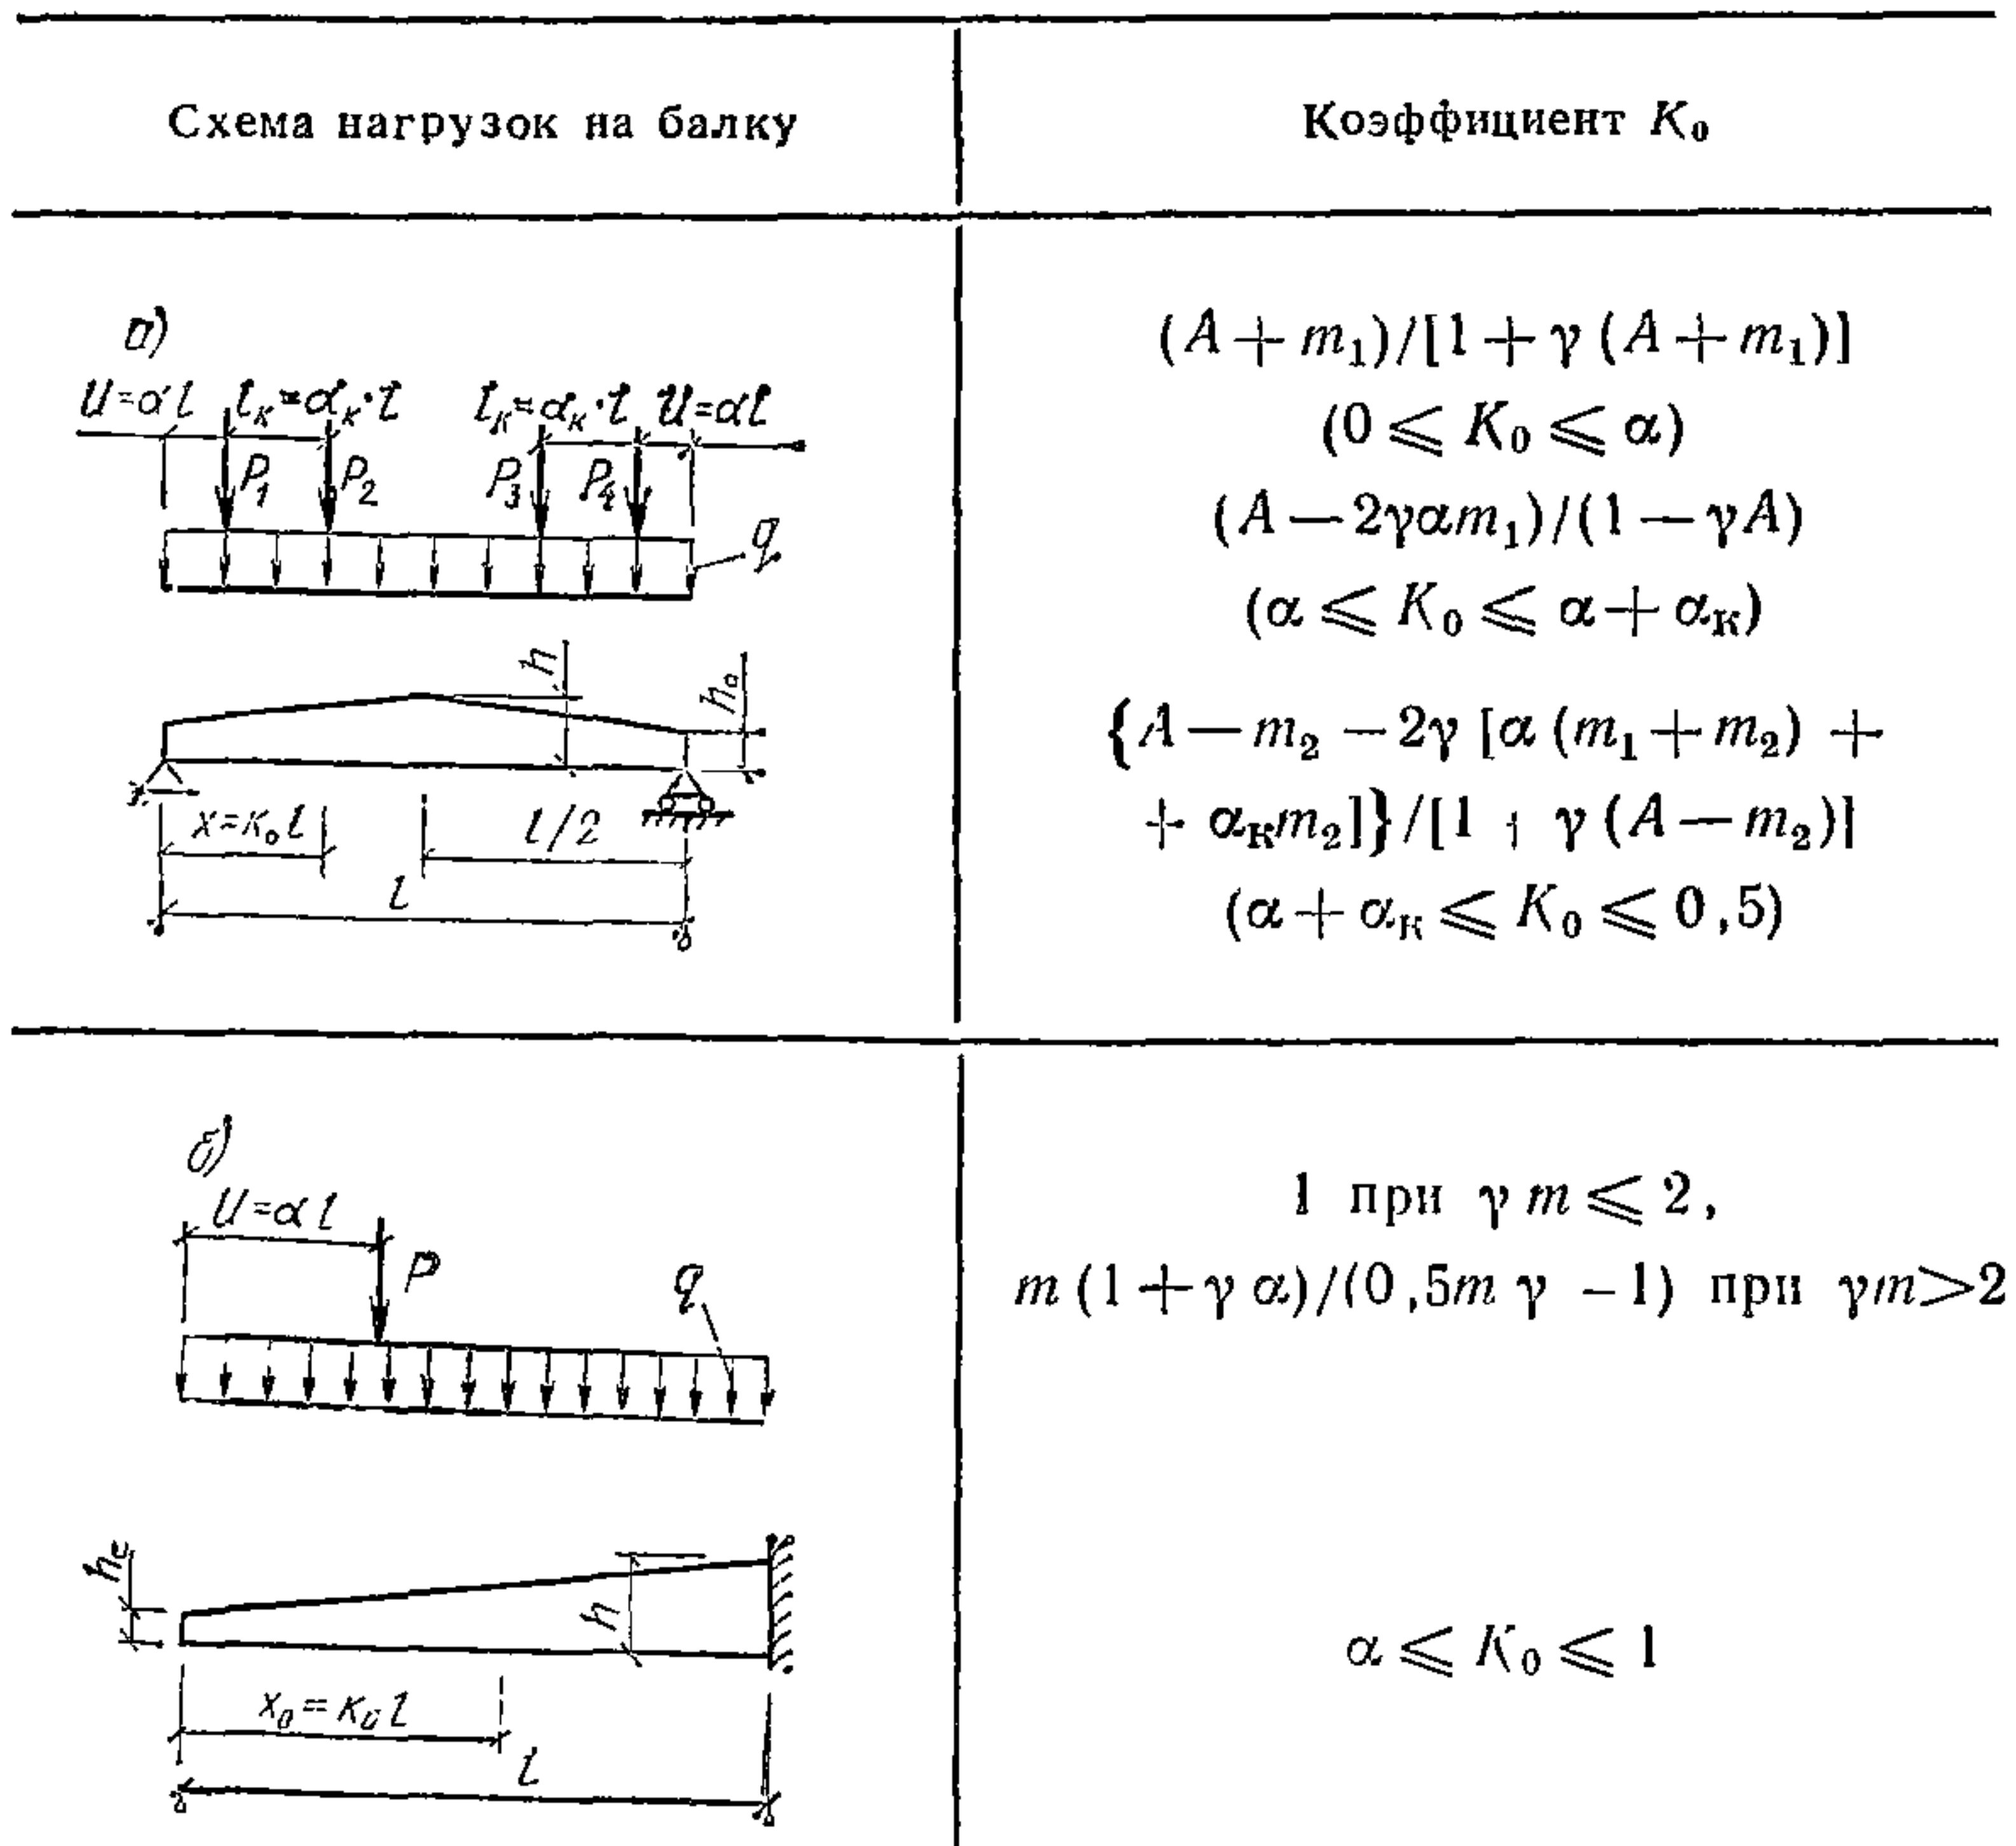 Схема нагрузок на балку
Коэффициент K₀
а)
U=αl lₖ=αₖ·l lₖ=αₖ·l U=αl
P₁ P₂ P₃ P₄
q
h h₀
x=K₀l l/2
l
(A + m₁)/[1 + γ (A + m₁)]
(0 ⩽ K₀ ⩽ α)
(A — 2γαm₁)/(1 — γA)
(α ⩽ K₀ ⩽ α + αₖ)
{A — m₂ — 2γ [α (m₁ + m₂) +
+ αₖm₂]}/[1 + γ (A — m₂)]
(α + αₖ ⩽ K₀ ⩽ 0,5)
б)
U=αl
P
q
h₀ h
x₀=K₀l
l
1 при γ m ⩽ 2,
m (1 + γ α)/(0,5m γ – 1) при γm>2
α ⩽ K₀ ⩽ 1